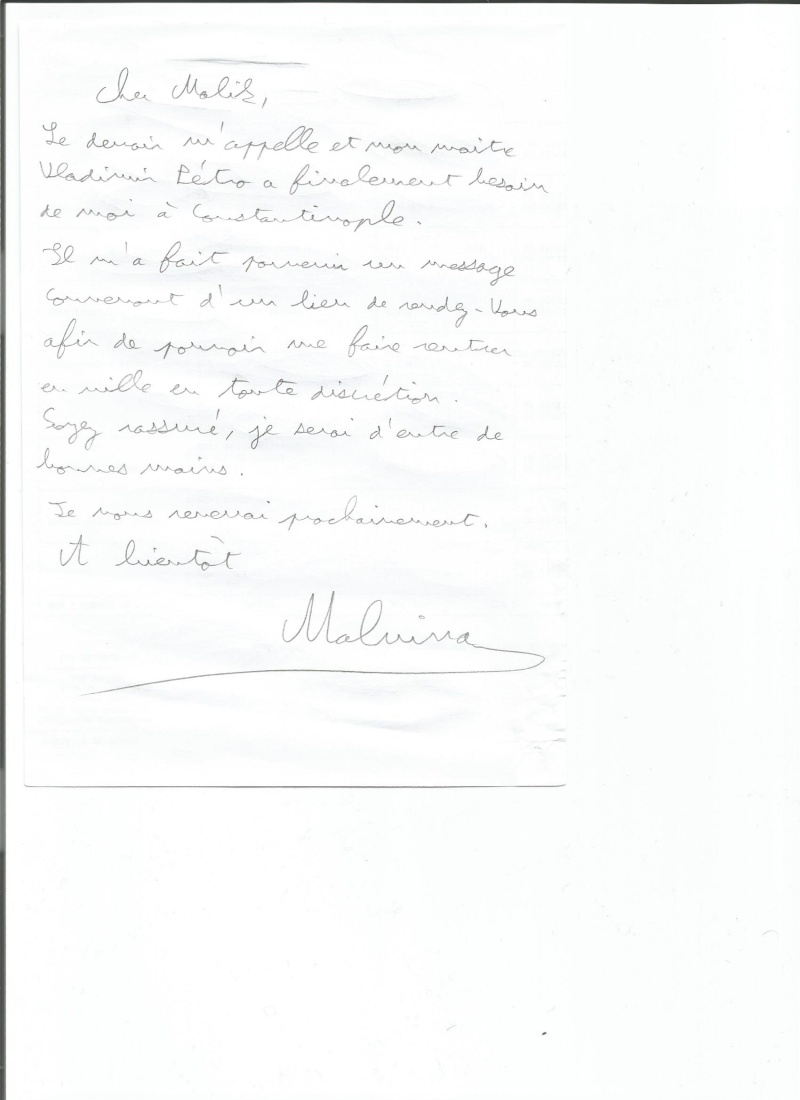 Cher Malik,
Le devoir m'appelle et mon maitre
Vladimir Pétro a finalement besoin
de moi à Constantinople.
Il m'a fait parvenir un message
convenant d'un lieu de rendez-vous
afin de pouvoir me faire rentrer
en ville en toute discrétion.
Soyez rassuré, je serai d'entre de
bonnes mains.
Je vous reverrai prochainement.
A bientôt
Malvina